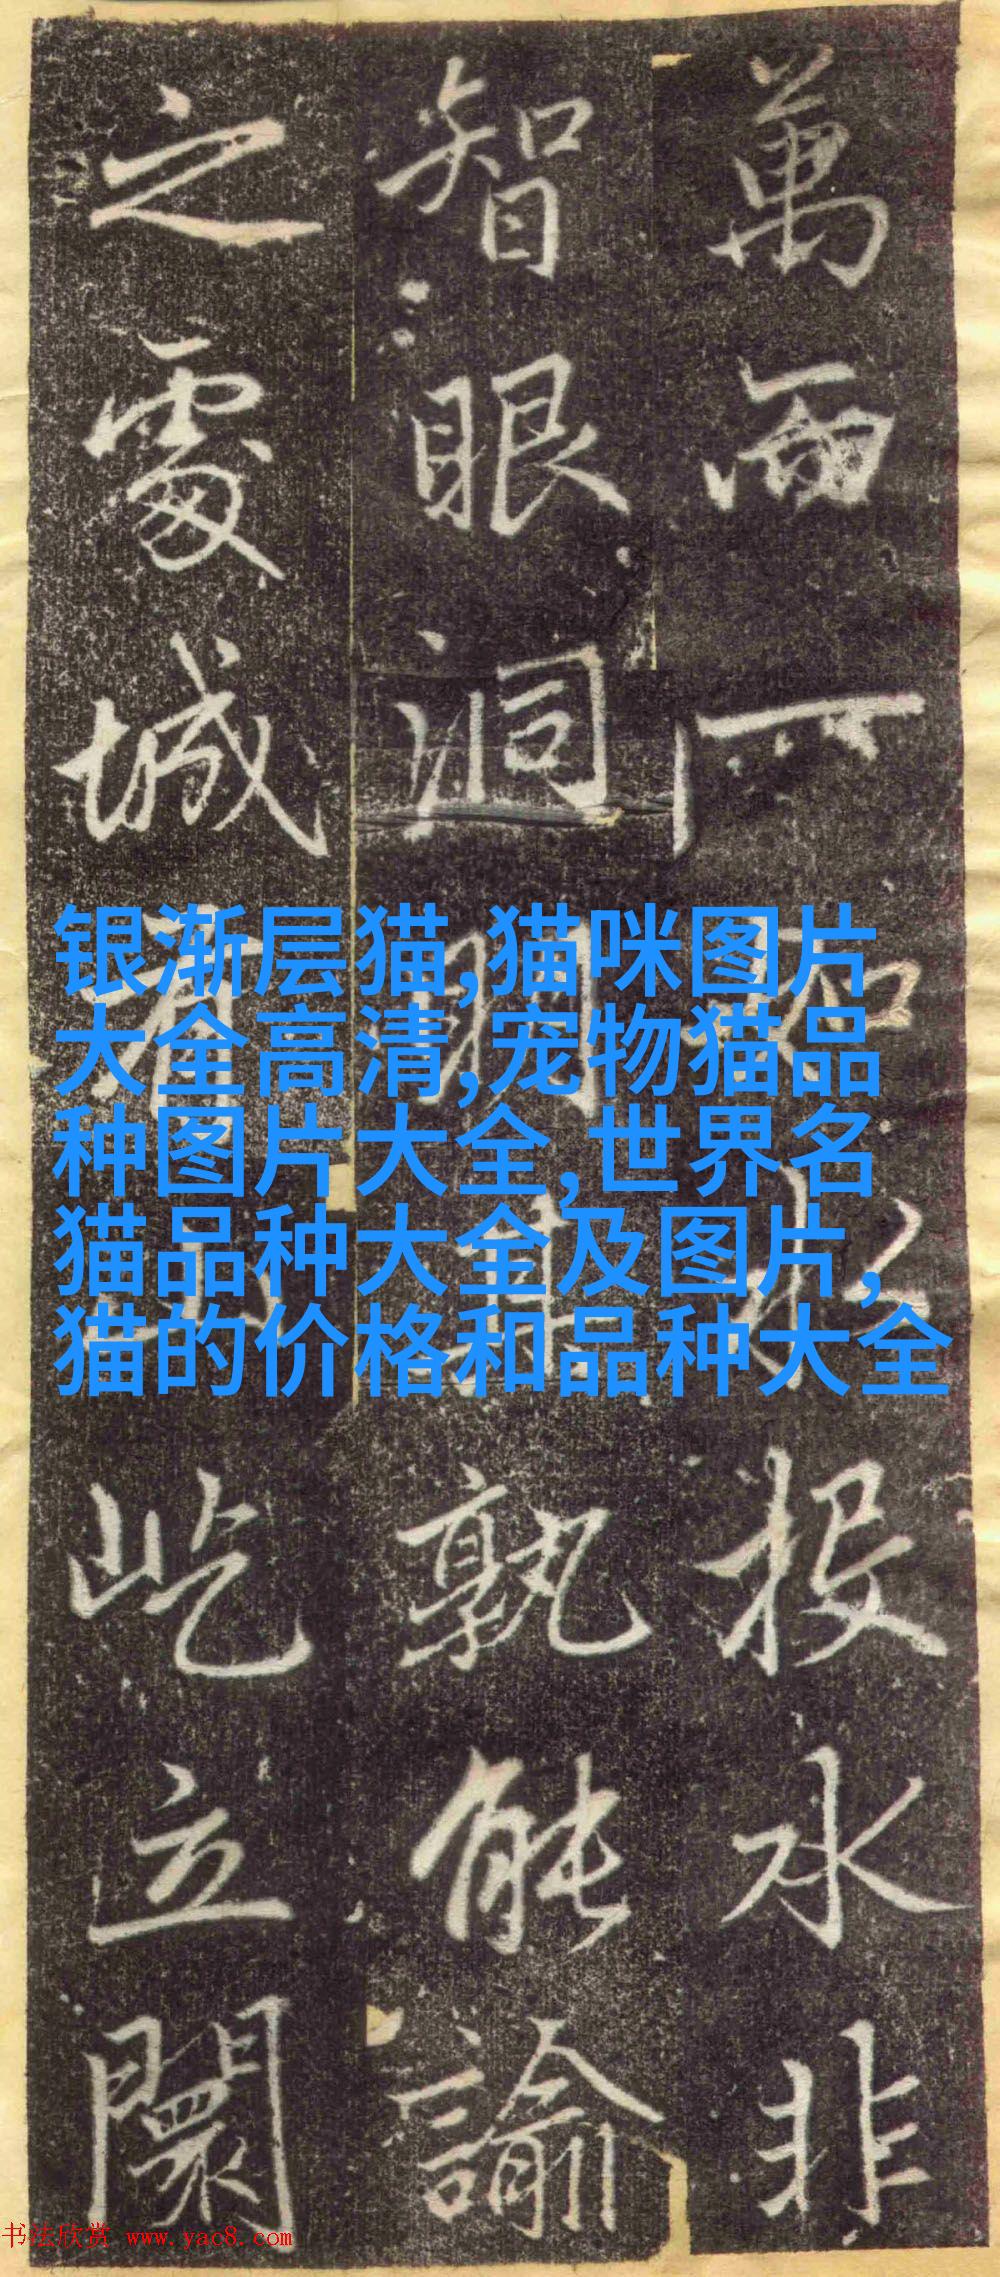 萬一投水非
智眼洞明其孰能諭
之處城屹立闤
银渐层猫,猫咪图片
大全高清,宠物猫品
种图片大全,世界名
猫品种大全及图片,
猫的价格和品种大全
书法欣赏 www.yac8.com